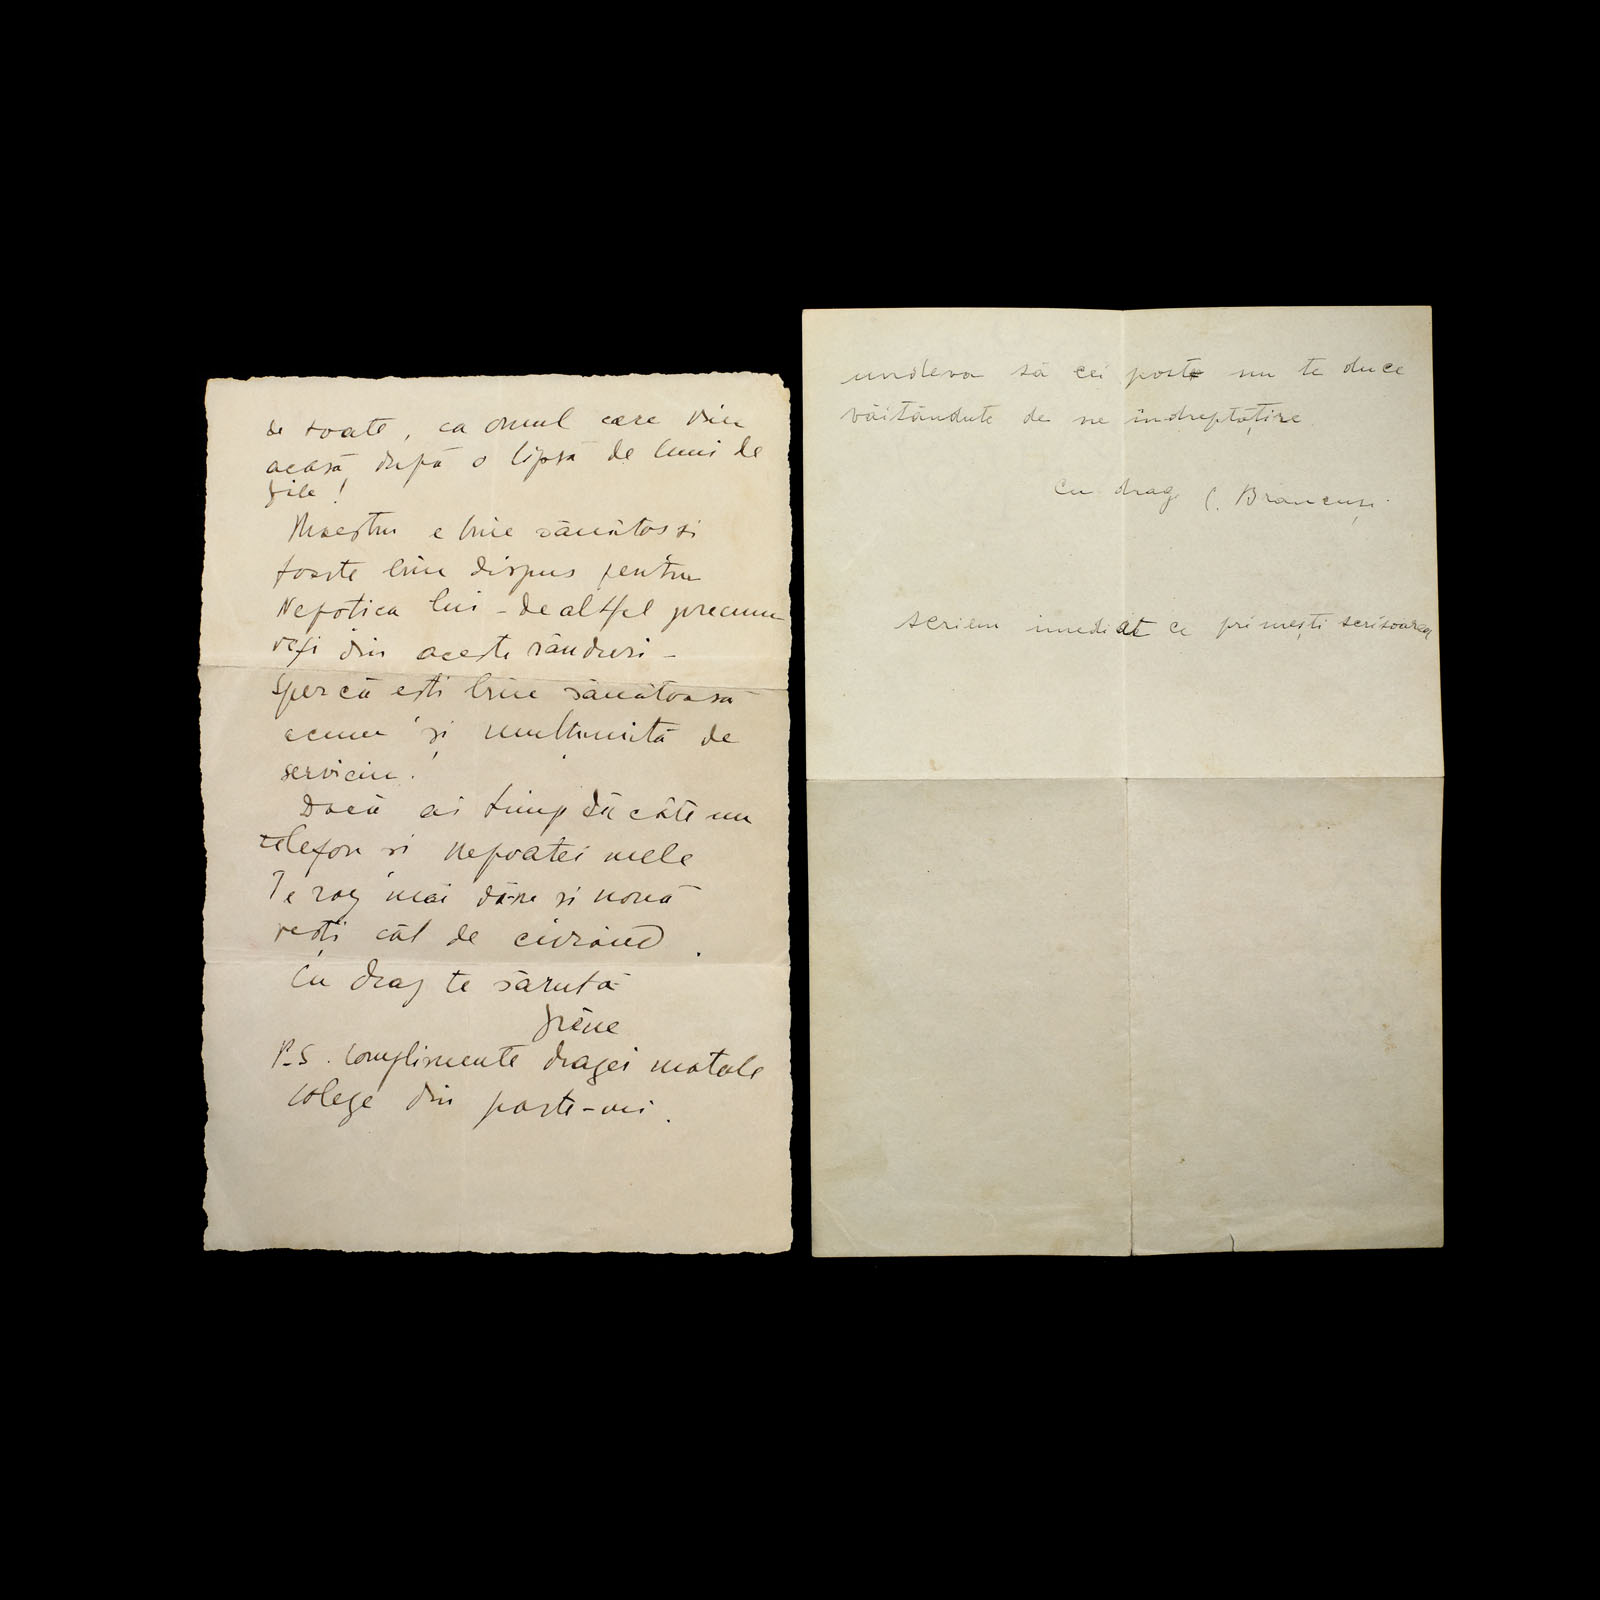 de toate, ca omul care vine
acasă după o lipsă de luni de
zile!
Maestrul e bine sănătos și
foarte bine dispus pentru
Nepotica lui - dealtfel precum
vezi din aceste rânduri -
Sper că ești bine sănătoasă
acum și mulțumită de
serviciu.
Dacă ai timp dă câte un
telefon și nepoatei mele
Te rog mai dă-ne și nouă
vești cât de curând.
Cu drag te sărută
Irène
P.S. Complimente dragei matale
colege din parte-mi.
undeva să cei post nu te duce
văităndute de ne îndreptățire
Cu drag C. Brancuși
scriem imediat ce primești scrisoarea